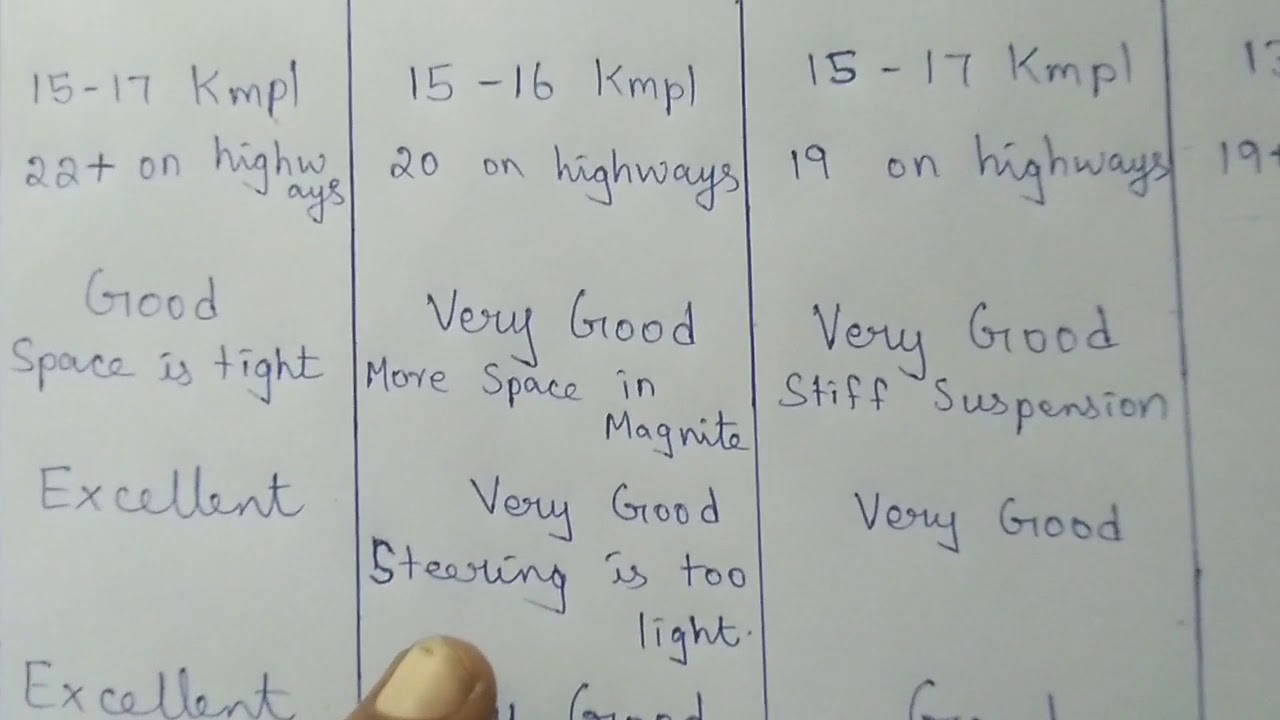 15-17 Kmpl
22+ on highw
ays
Good
Space is tight
Excellent
Excellent
15 - 16 Kmpl
20 on highways
Very Good
More Space in
Magnite
Very Good
Steering is too
light.
Good
15 - 17 Kmpl
19 on highways
Very Good
Stiff Suspension
Very Good
19+